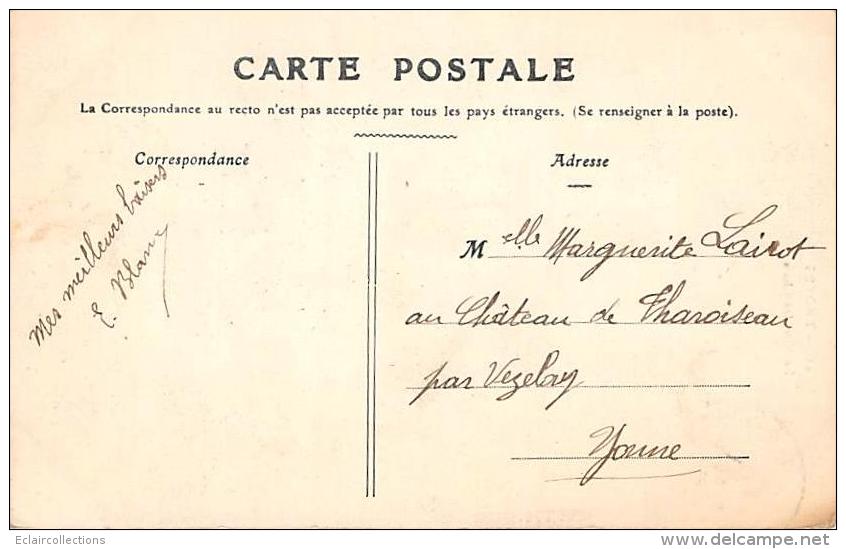 CARTE POSTALE
La Correspondance au recto n'est pas acceptée par tous les pays étrangers. (Se renseigner à la poste).
Correspondance
Mes meilleurs baisers
E. Blanc
Adresse
Melle Marguerite Lairot
au Château de Tharoiseau
par Vezelay
Yonne
Eclaircollections
www.delcampe.net